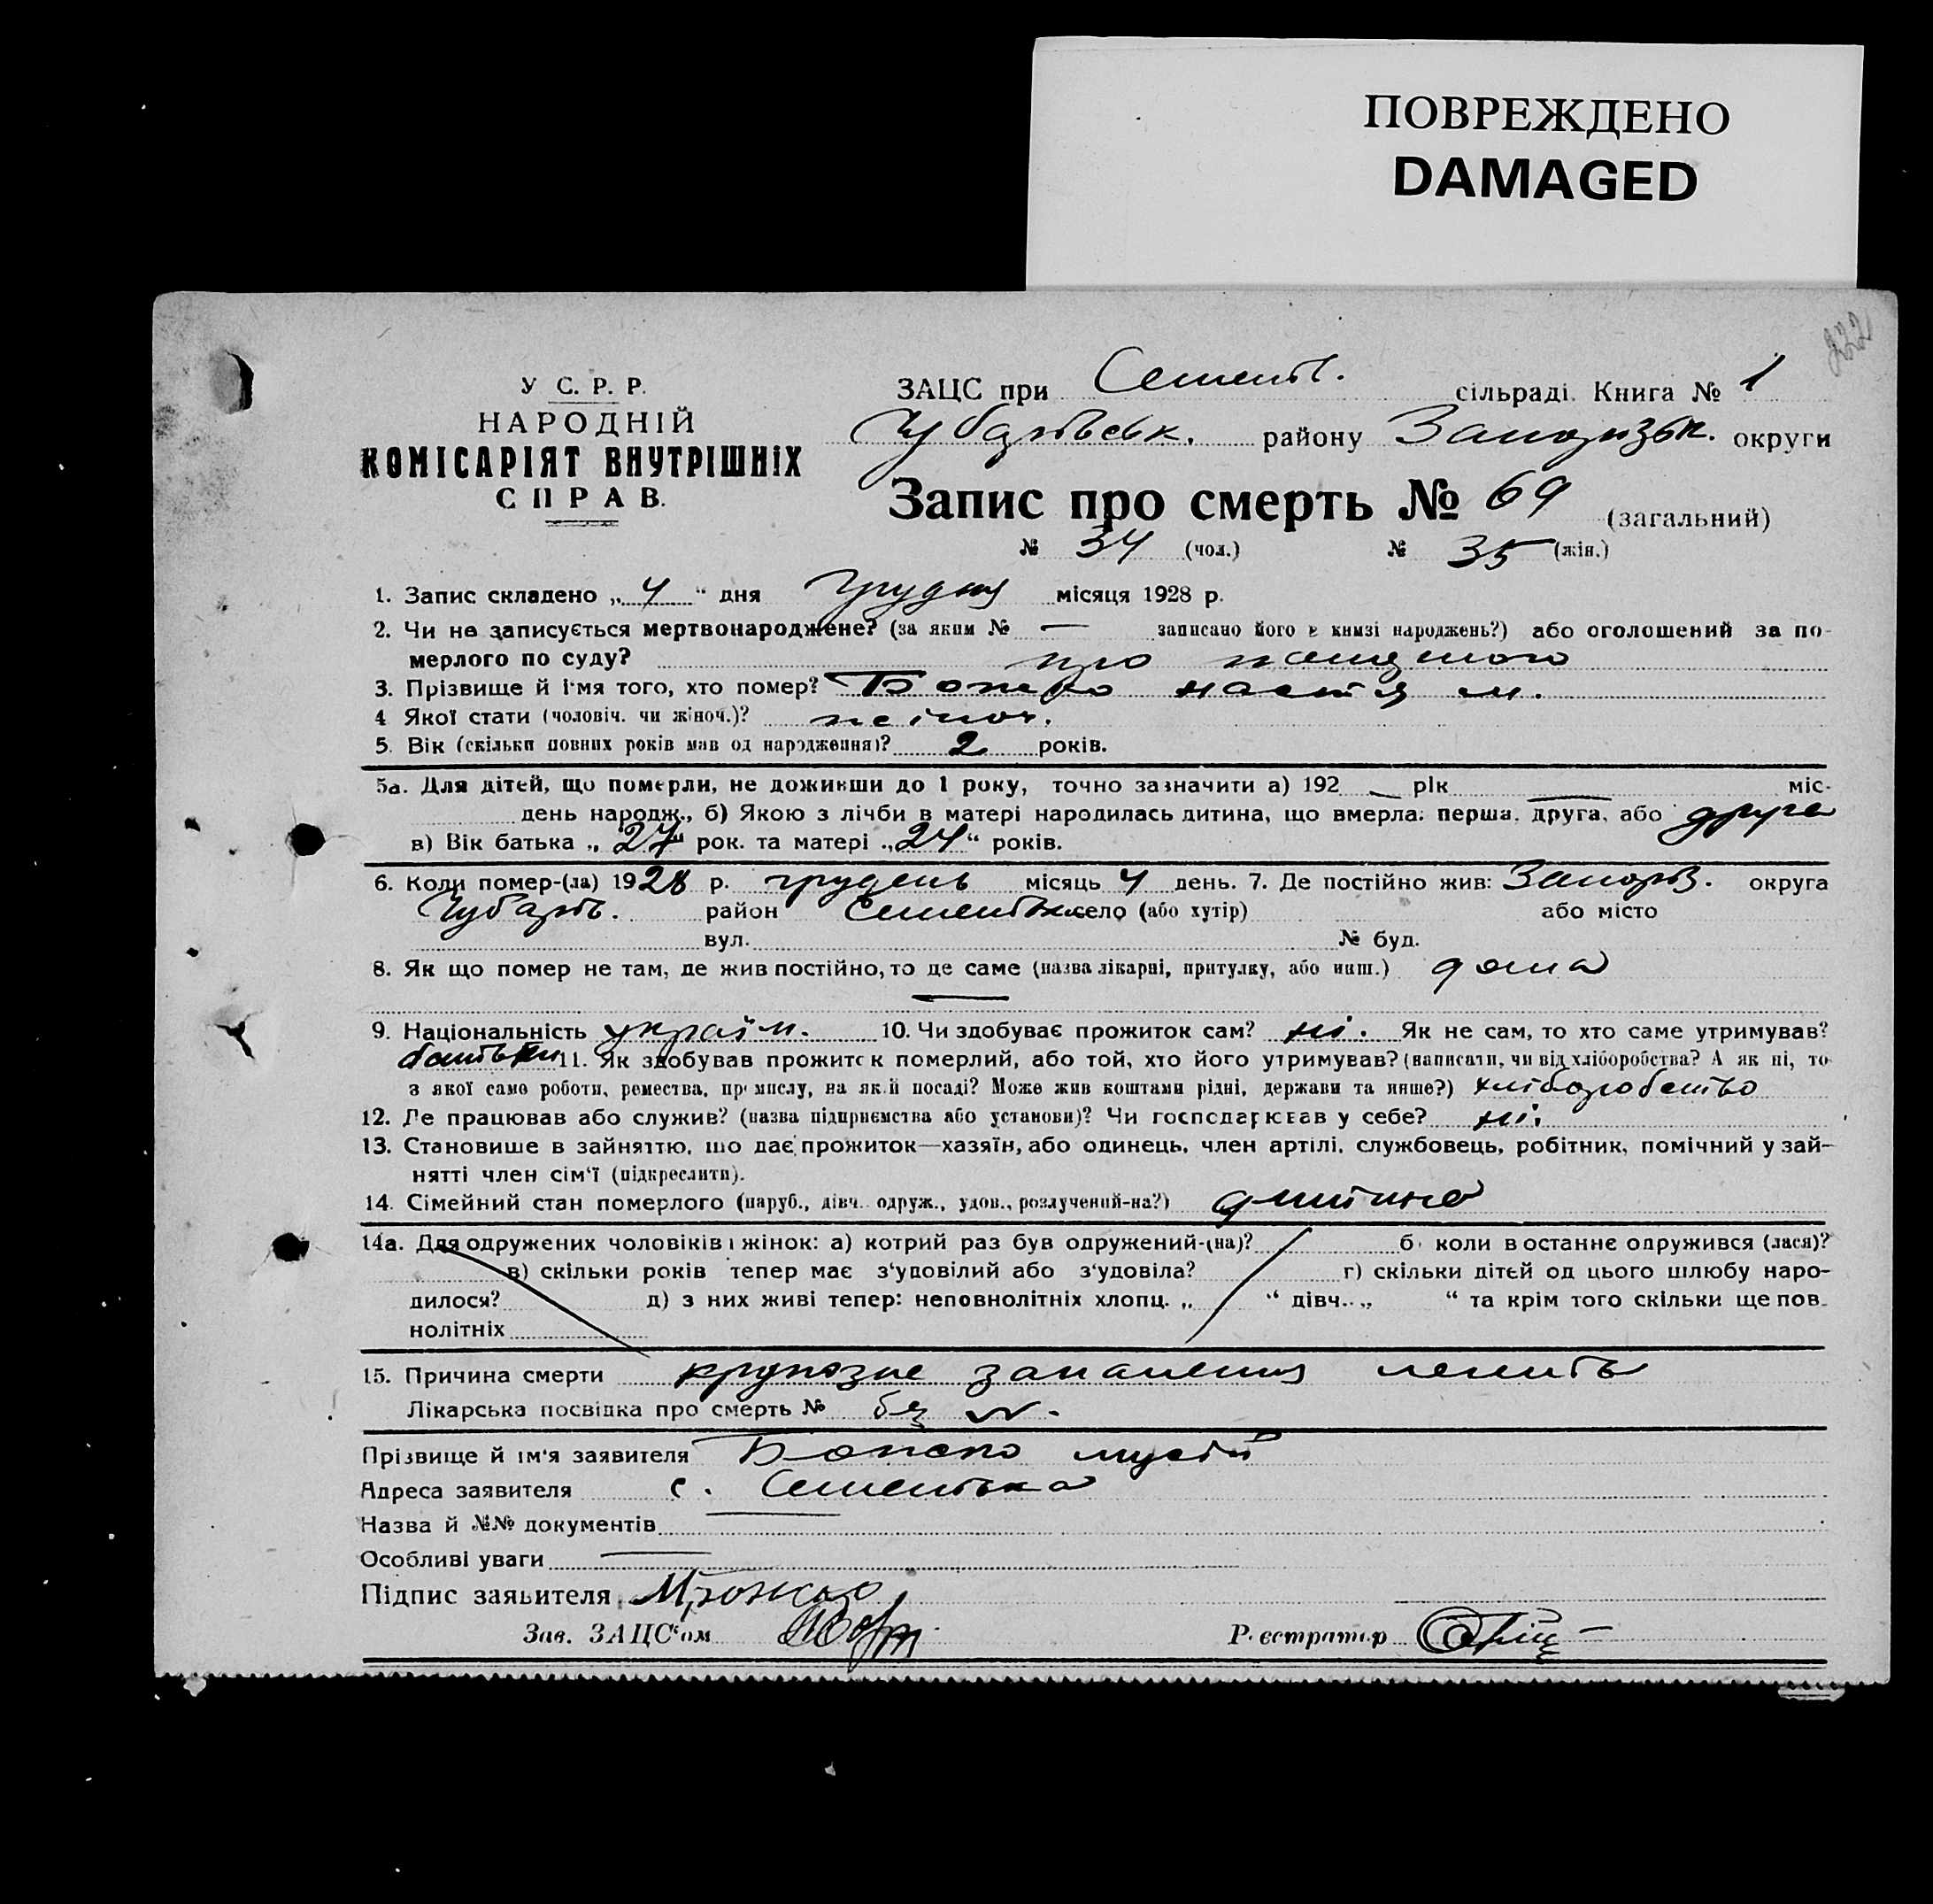 ПОВРЕЖДЕНО
DAMAGED
222
У С. Р. Р.
НАРОДНІЙ
КОМІСАРІЯТ ВНУТРІШНІХ
СПРАВ.
ЗАЦС при Семенів. сільраді. Книга № 1
Чубарівськ. району Запорізьк. округи
Запис про смерть № 69 (загальний)
№ 34 (чол.) № 35 (жін.)
1. Запис складено „ 4 “ дня Грудня місяця 1928 р.
2. Чи не записується мертвонароджене? (за яким № — записано його в книзі народжень?) або оголошений за по-
мерлого по суду? про
3. Прізвище й ім'я того, хто помер? Божко Настя М.
4 Якої стати (чоловіч. чи жіноч.)? жіноч.
5. Вік (скільки повних років мав од народження)? 2 років.
5а. Для дітей, що померли, не доживши до 1 року, точно зазначити а) 192 — рік — міс-
день народж., б) Якою з лічби в матері народилась дитина, що вмерла: перша, друга, або друга
в) Вік батька „ 27 “ рок. та матері „ 24 “ років.
6. Коли помер-(ла) 1928 р. грудень місяць 4 день. 7. Де постійно жив: Запоріз. округа
Чубарів. район Семенівка село (або хутір) або місто
вул. № буд.
8. Як що помер не там, де жив постійно, то де саме (назва лікарні, притулку, або инш.) дома
—
9. Національність україн. 10. Чи здобуває прожиток сам? ні. Як не сам, то хто саме утримував?
батьки 11. Як здобував прожиток померлий, або той, хто його утримував? (написати, чи від хліборобства? А як ні, то
з якої само роботи, ремества, промислу, на якій посаді? Може жив коштами рідні, держави та инше?) хліборобство
12. Де працював або служив? (назва підприємства або установи)? Чи господарював у себе? ні.
13. Становище в зайняттю, що дає прожиток—хазяїн, або одинець, член артілі, службовець, робітник, помічний у зай-
нятті член сім'ї (підкреслити).
14. Сімейний стан померлого (паруб., дівч. одруж., удов., розлучений-на?) дитина
14а. Для одружених чоловіків і жінок: а) котрий раз був одружений-(на)? б) коли в останнє одружився (лася)?
в) скільки років тепер має з'удовілий або з'удовіла? г) скільки дітей од цього шлюбу наро-
дилося? д) з них живі тепер: неповнолітніх хлопц. „ “ дівч. „ “ та крім того скільки ще пов-
нолітніх
15. Причина смерти крупозне запалення легенів
Лікарська посвідка про смерть № без №.
Прізвище й ім'я заявителя Божко Мусій
Адреса заявителя с. Семенівка
Назва й №№ документів —
Особливі уваги —
Підпис заявителя МБожко
Зав. ЗАЦС'ом
Реєстратор